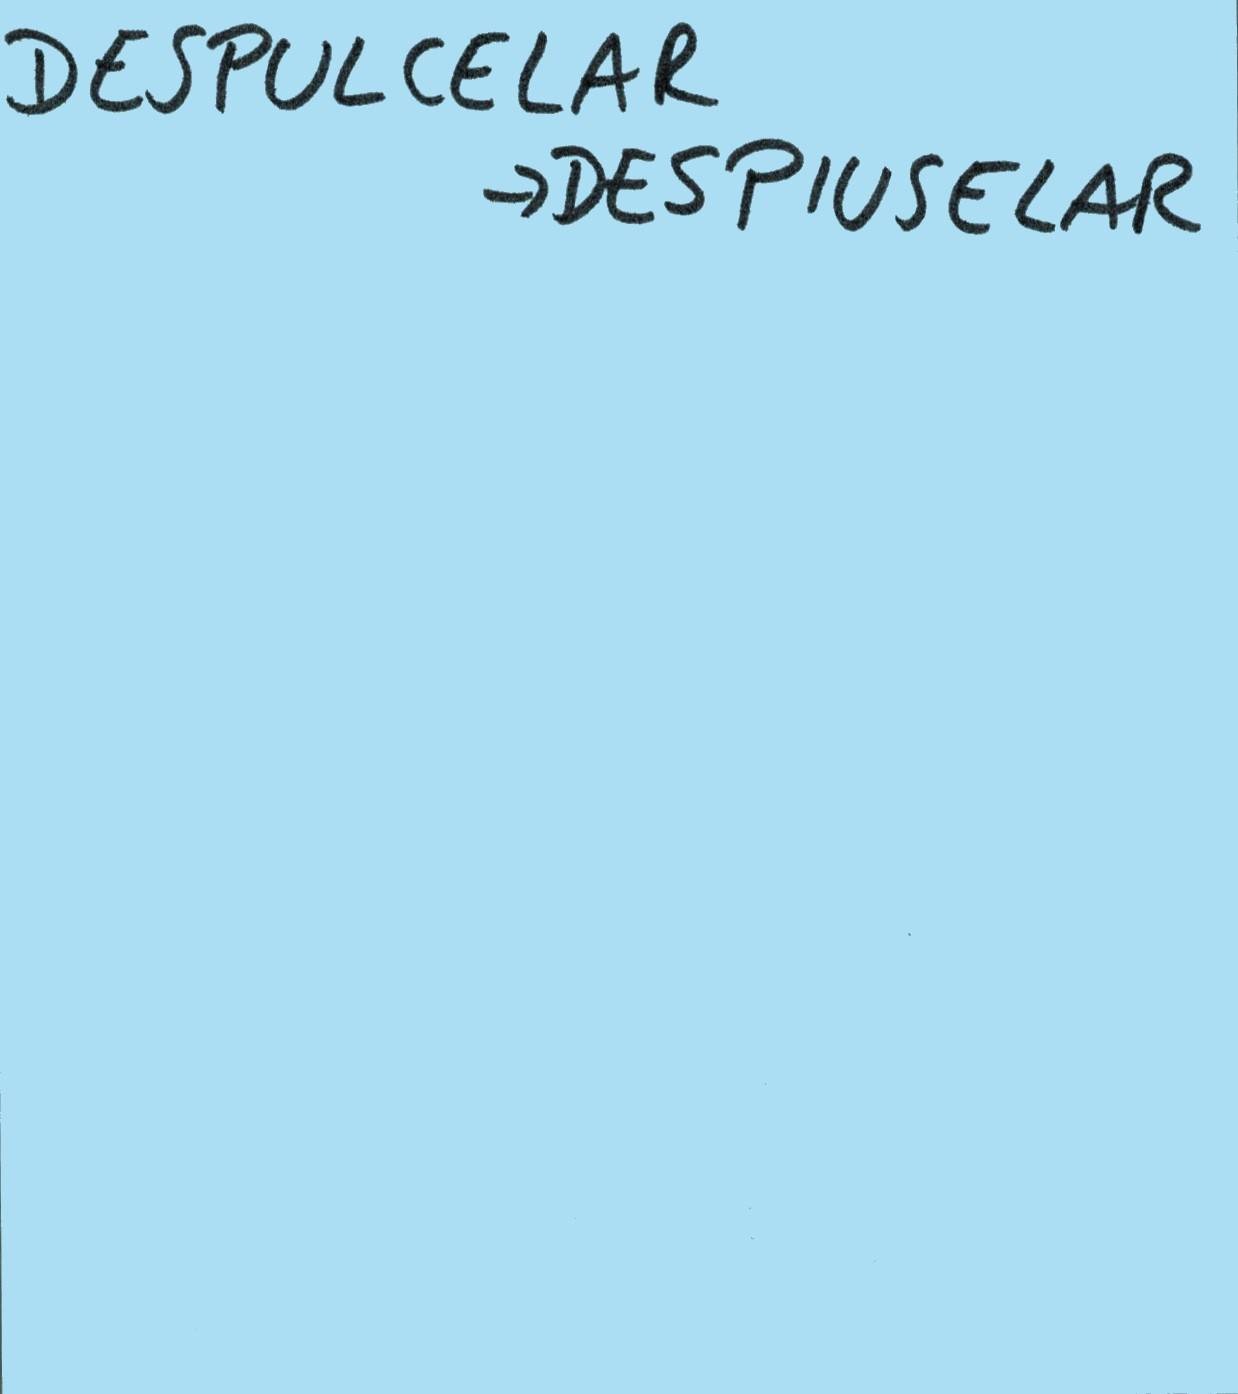 DESPULCELAR
→DESPIUSELAR